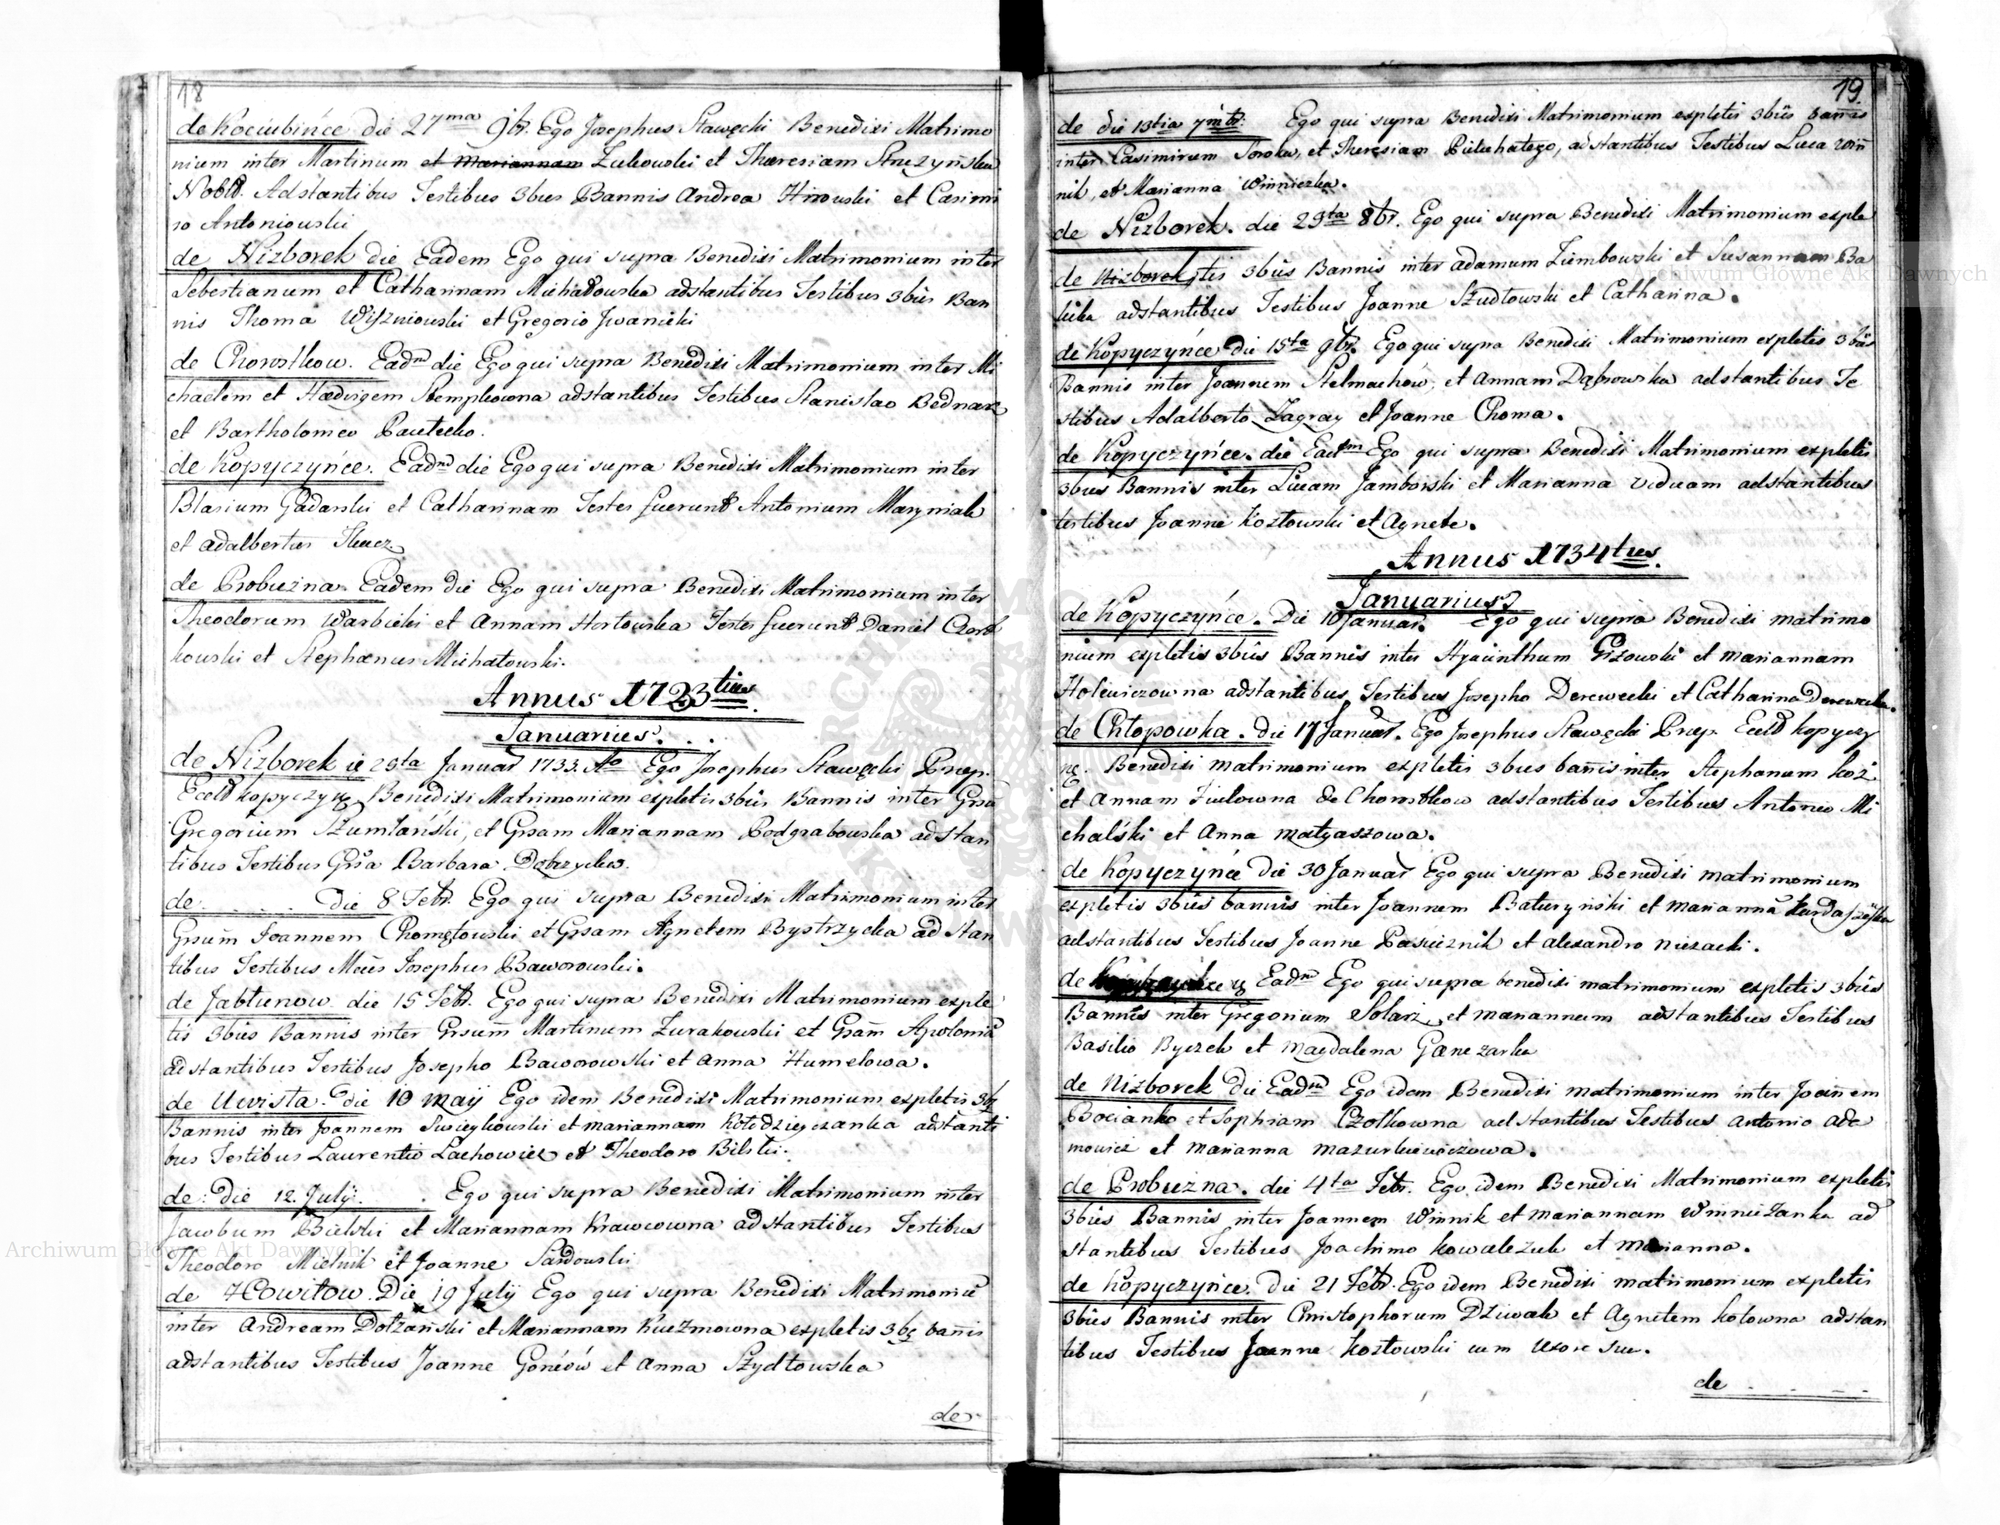 18
de Kociubińce die 27ma 9br. Ego Josephus Sławęcki Benedixi Matrimo
nium inter Martinum et Mariannam Zukowski et Theresiam
Nobil. Adstantibus Testibus 3bus Bannis Andrea et Casimi
ro Antoniowski
de Niżborek die Eadem Ego qui supra Benedixi Matrimonium inter
Sebestianum et Catharinam Michałowska adstantibus Testibus 3bus Ban
nis Thoma Wiszniowski et Gregorio Jwanicki
de Chorostkow. Eadm die Ego qui supra Benedixi Matrimonium inter Mi
chaelem et Hedvigem Stemplowna adstantibus Testibus Stanislao Bednarz
et Bartholomeo
de Kopyczyńce. Eadm die Ego qui supra Benedixi Matrimonium inter
Blasium Gadarski et Catharinam Testes fuerunt Antonium Maryniak
et adalbertus
de Probużna Eadem die Ego qui supra Benedixi Matrimonium inter
Theodorum Warbicki et Annam Hortowska Testes fuerunt Daniel Czort
kowski et Stephanus Michałowski.
Annus 1723tius.
Januarius.
de Niżborek ie 29ta Januar 1733. Ao Ego Josephus Sławęcki Præp.
Eccl Kopyczyn Benedixi Matrimonium expletis 3bus Bannis inter Grsu
Gregorium Szumlański, et Grsam Mariannam Podgrabowska adstan
tibus Testibus Grsa Barbara
de . . . . . die 8 Febr. Ego qui supra Benedixi Matrimonium inter
Grsum Joannem Chomętowski et Grsam Agnetem Bystrzycka ad stan
tibus Testibus Josephus Baworowski.
de Jabłunow die 15 Febr. Ego qui supra Benedixi Matrimonium exple
tis 3bus Bannis inter Grsum Martinum Zurakowski et Grsam Apolonia
adstantibus Testibus Josepho Baworowski et Anna Humelowa.
de Uwista. die 10 maij Ego idem Benedixi Matrimonium expletis 3b
Bannis inter Joannem et mariannam Kołodzieyczanka adstanti
bus Testibus Laurentio Lachowicz et Theodoro Bilski.
de: die 12. Julij. Ego qui supra Benedixi Matrimonium inter
Jacobum Bielski et Mariannam Krawcowna adstantibus Testibus
Theodoro Mielnik et Joanne Sadowski
de Howiłow. Die 19 Julij Ego qui supra Benedixi Matrimoniu
inter Andream Dołżański et Mariannam Kuczmowna expletis 3b banis
adstantibus Testibus Joanne Gonców et Anna Szydłowska
de
19.
de die 13tia 7mbr: Ego qui supra Benedixi Matrimonium expletis 3bus bannis
inter Casimirum Soroka, et Theresiam adstantibus Testibus Luca win
nik, et Marianna Winniczka.
de Niżborek. die 29ta 8br. Ego qui supra Benedixi Matrimonium exple
de Niżborek, tis 3bus Bannis inter adamum Ziembowski et Susannam Ba
bicka adstantibus Testibus Joanne Szudłowski et Catharina.
de Kopyczyńce die 15ta 9br. Ego qui supra Benedixi Matrimonium expletis 3bus
Bannis inter Joannem Stelmachów, et Annam Dąbrowska adstantibus Te
stibus Adalberto Zagray et Joanne Choma.
de Kopyczyńce. die Eadm Ego qui supra Benedixi Matrimonium expletis
3bus Bannis inter Lucam Jamborski et Marianna viduam adstantibus
testibus Joanne Kozłowski et Agnete.
Annus 1734tus.
Januarius
de Kopyczyńce. Die 10 Januar. Ego qui supra Benedixi matrimo
nium expletis 3bus Bannis inter Hyacinthum Gizowski et mariannam
Holewiczowna adstantibus Testibus Josepho Derewecki et Catharina Derewecka.
de Chłopowka. die 17 Januar. Ego Josephus Sławęcki Præp. Eccl Kopyczy
nę. Benedixi matrimonium expletis 3bus banis inter Stephanum Koż
et Annam de Chorostkow adstantibus Testibus Antonio Mi
chalski et Anna matyaszowa.
de Kopyczyńce die 30 Januar Ego qui supra Benedixi matrimonium
expletis 3bus bannis inter Joannem Baturyński et marianna
adstantibus Testibus Joanne Pasiecznik et alexandro
de Eadm Ego qui supra benedixi matrimonium expletis 3bus
Bannis inter Gregorium Solarz et mariannam adstantibus Testibus
Basilio Byczek et Magdalena Ganczarka
de Niżborek die Eadm Ego idem Benedixi matrimonium inter Joannem
Bocianko et Sophiam Czołkowna adstantibus Testibus Antonio ada
mowicz et marianna mazurkiewiczowa.
de Probużna. die 4ta Febr. Ego idem Benedixi Matrimonium expletis
3bus Bannis inter Joannem Winnik et mariannam Winniczanka ad
stantibus Testibus Joachimo Kowalczuk et marianna.
de Kopyczyńce. die 21 Febr. Ego idem Benedixi matrimonium expletis
3bus Bannis inter Christophorum Dziwak et Agnetem Kotowna adstan
tibus Testibus Joanne Kozłowski cum uxore sua.
de . . . .
Archiwum Główne Akt Dawnych
Archiwum Główne Akt Dawnych